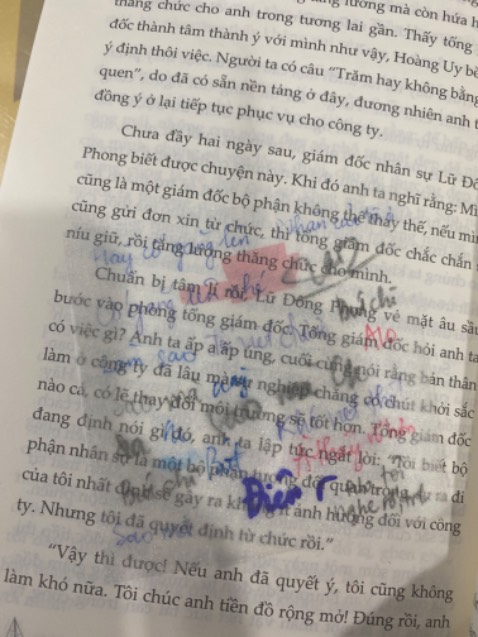 thăng chức cho anh trong tương lai gần. Thấy tổng
đốc thành tâm thành ý với mình như vậy, Hoàng Uy bè
ý định thôi việc. Người ta có câu "Trăm hay không bằng
quen", do đã có sẵn nền tảng ở đây, đương nhiên anh
đồng ý ở lại tiếp tục phục vụ cho công ty.
Chưa đầy hai ngày sau, giám đốc nhân sự Lữ Đồ
Phong biết được chuyện này. Khi đó anh ta nghĩ rằng: Mì
cũng là một giám đốc bộ phận không thể thay thế, nếu mì
cũng gửi đơn xin từ chức, thì tổng giám đốc chắc chắn
níu giữ, rồi tăng lương thăng chức cho mình.
Chuẩn bị tâm lí rồi, Lữ Đồng Phong vẻ mặt âu sầu
bước vào phòng tổng giám đốc. Tổng giám đốc hỏi anh ta
có việc gì? Anh ta ấp a ấp úng, cuối cùng nói rằng bản thân
làm ở công ty đã lâu mà sự nghiệp chẳng có chút khởi sắc
nào cả, có lẽ thay đổi môi trường sẽ tốt hơn. Tổng giám đốc
đang định nói gì đó, anh ta lập tức ngắt lời: "Tôi biết bộ
phận nhân sự là một bộ phận tương đối quan trọng, ra đi
của tôi nhất định sẽ gây ra ảnh hưởng đối với công
ty. Nhưng tôi đã quyết định từ chức rồi."
Điên
"Vậy thì được! Nếu anh đã quyết ý, tôi cũng không
làm khó nữa. Tôi chúc anh tiền đồ rộng mở! Đúng rồi, anh